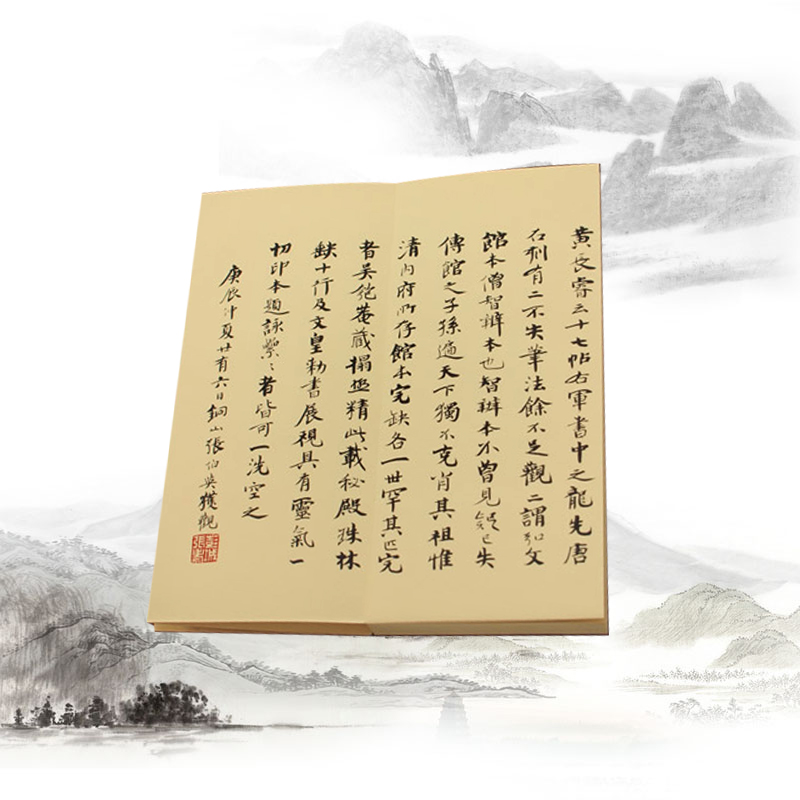 黄長睿云十七帖右軍書中之龍先唐
石刻有二不失筆法餘不足觀二謂弘文
館本僧智辦本也智辦本不曾見疑已失
傳館之子孫遍天下獨不克肖其祖惟
清內府所存館本完缺各一世罕其匹完
者吳匏菴藏搨極精此載秘殿珠林
缺十行及文皇勅書展視具有靈氣一
切印本題詠纍〻者皆可一洗空之
庚辰中夏廿有六日銅山張伯英獲觀